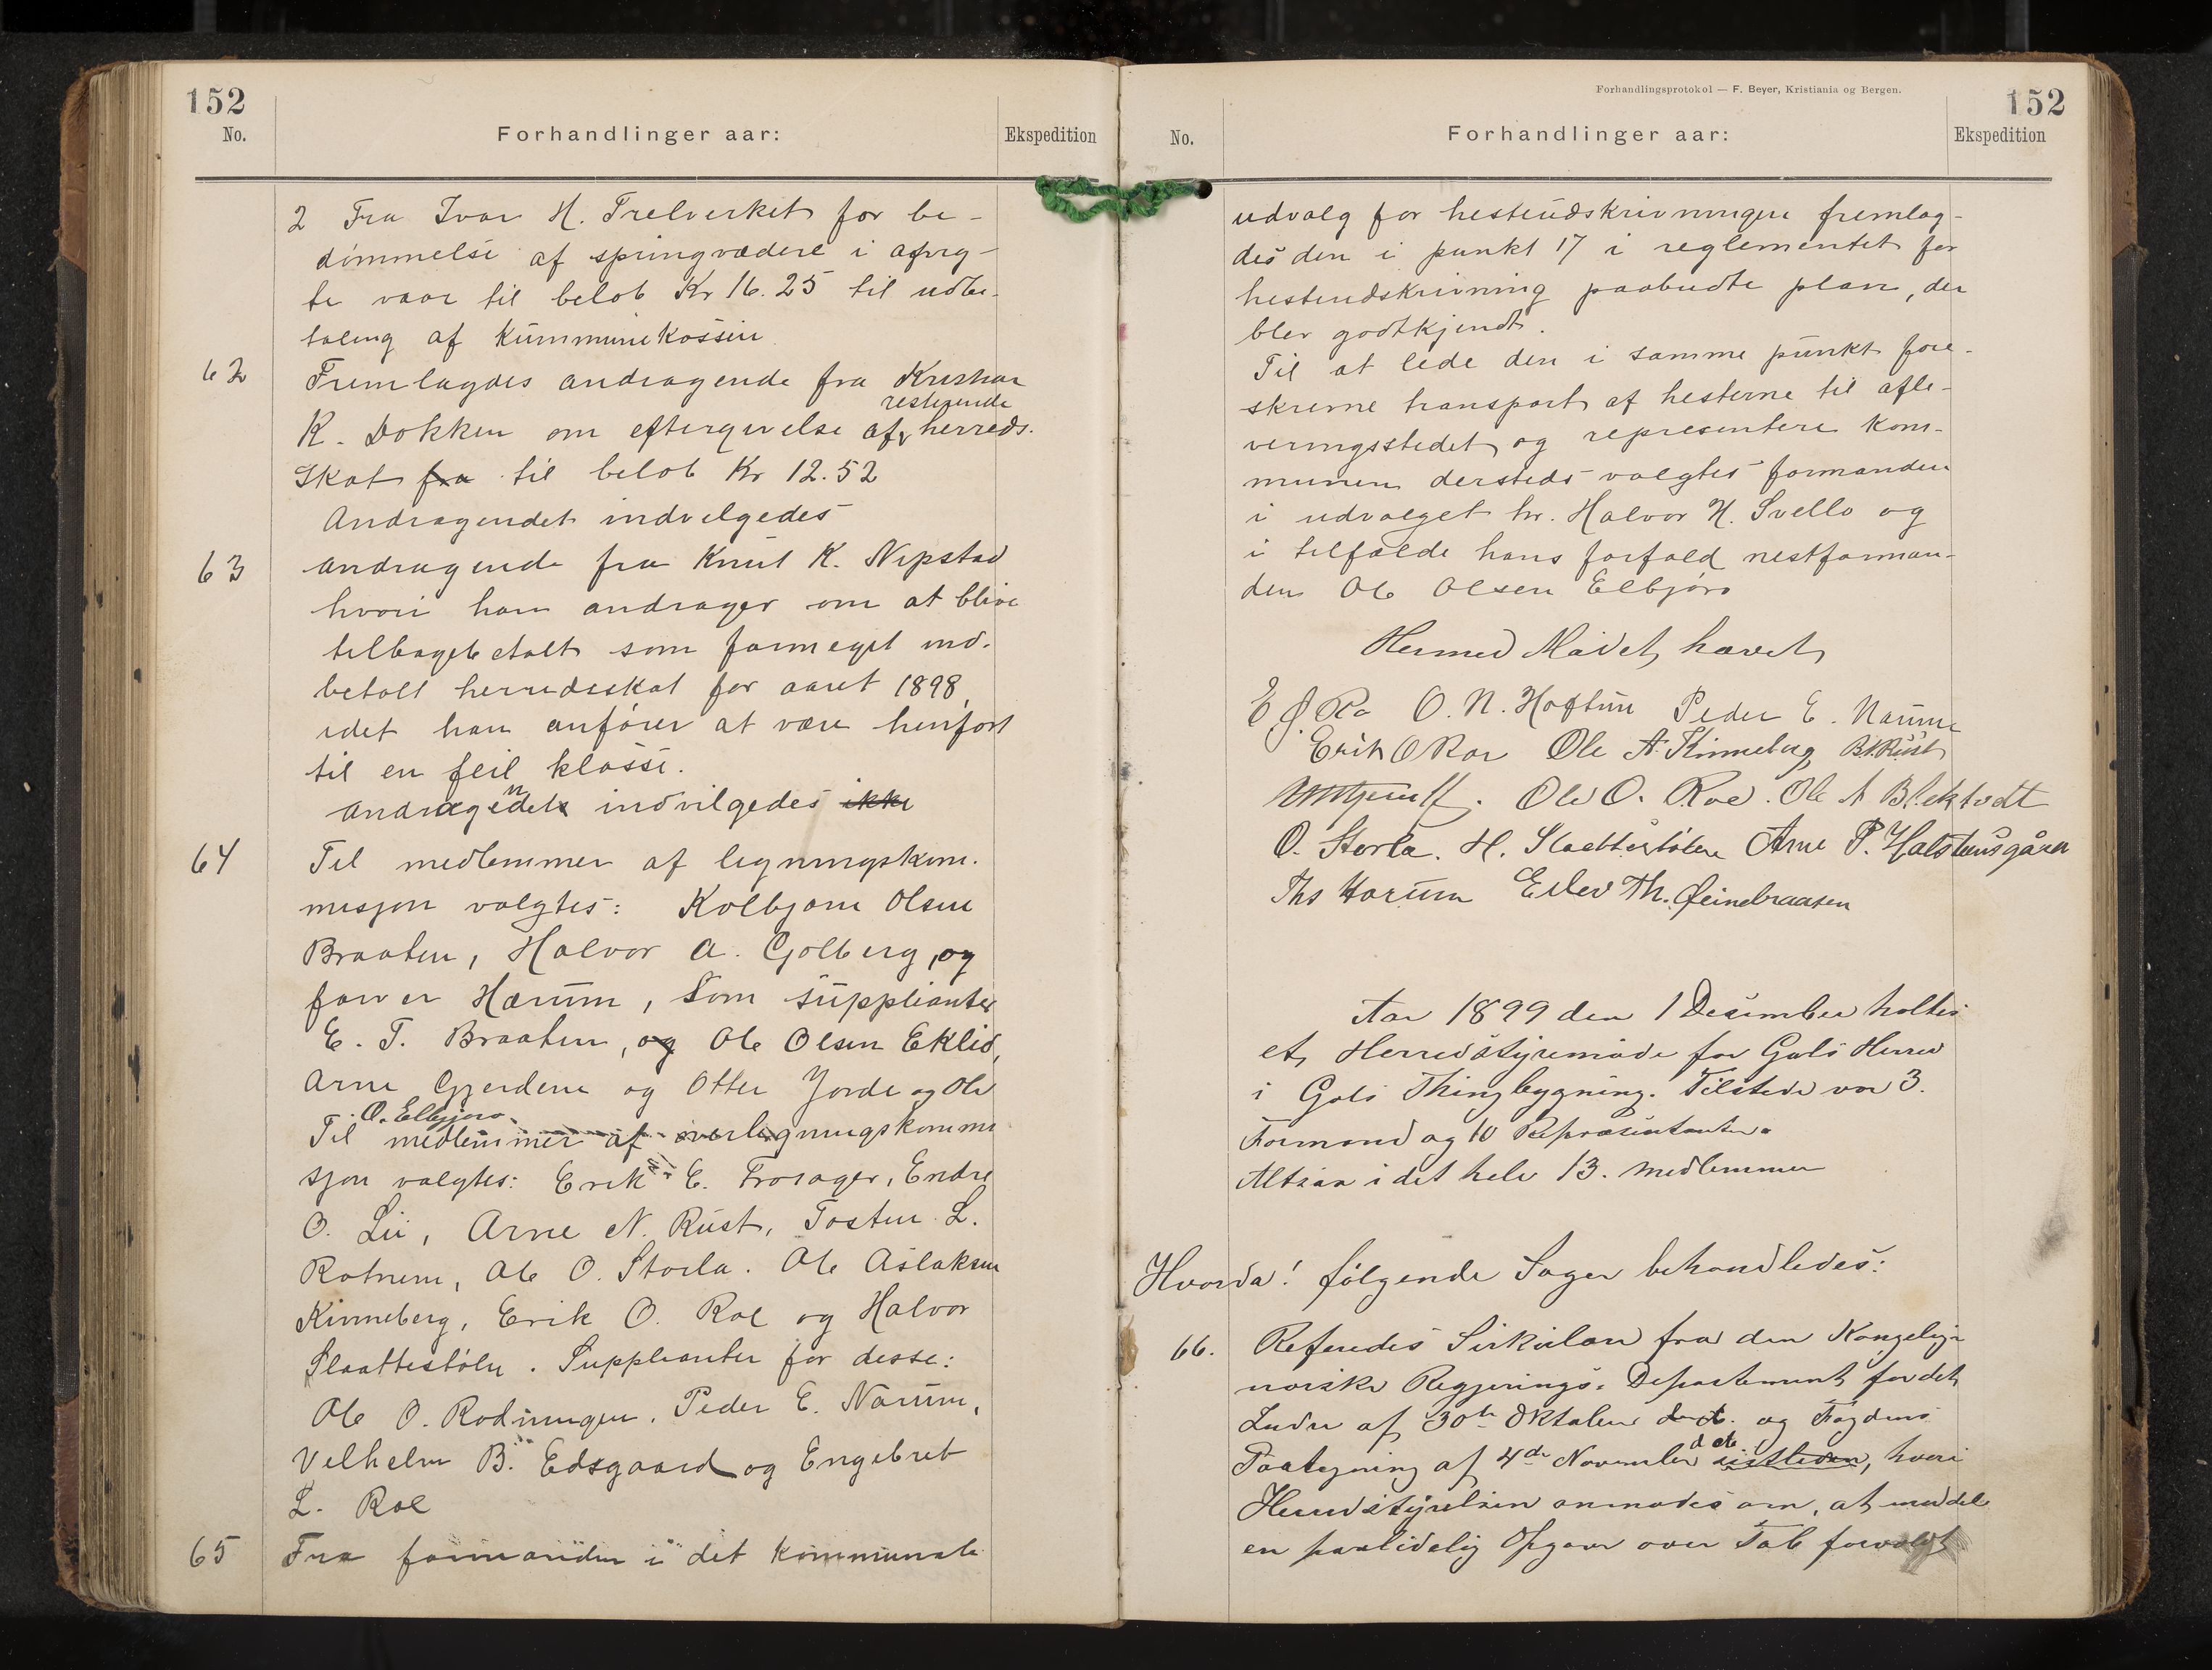 152
No.
Forhandlinger aar:
Ekspedition
2 Fra Ivar H. Trelverket for be-
dømmelse af springvædere i
te vaar til beløb Kr 16.25 til udbe-
taling af Kummunekassen
62 Fremlagdes andragende fra Kristian
resterende
K. Dokken om eftergivelse af herreds-
skat fra til beløb Kr 12.52
Andragendet indvilgedes
63 andragende fra Knut K. Nipstad
hvori han andrager om at blive
tilbagebetalt som formeget ind-
betalt herredsskat for aaret 1898,
idet han anfører at være henført
til en feil klasse.
andragendet indvilgedes ikke
64 Til medlemmer af ligningskom-
misjon valgtes: Kolbjørn Olsen
Braaten, Halvor A. Golberg, og
farver Hærum, som supplianter
E. T. Braaten, og Ole Olsen Eklid,
Arne Gjerdene og Otter Jorde og Ole
O. Elbjørn
Til medlemmer af overligningskommi
sjon valgtes: Erik E. Frosager, Endre
O. Lii, Arne N. Rust, Tosten L.
Rotnem, Ole O. Storla. Ole Aslaksen
Kinneberg, Erik O. Roe og Halvor
Slaattestølen. Supplianter for desse:
Ole O. Rodningen, Peder E. Narum,
Velhelm B. Edsgaard og Engebret
L. Roe
65 Fra formanden i det kommunale
Forhandlingsprotokol — F. Beyer, Kristiania og Bergen.
152
No.
Forhandlinger aar:
Ekspedition
udvalg for hesteudskrivningen fremlag-
des den i punkt 17 i reglementet for
hesteudskrivning paabudte plan, der
blev godtkjendt.
Til at lede den i samme punkt fore-
skrevne transport af hesterne til afle-
veringsstedet og representere kom-
munen dersteds valgtes formanden
i udvalget hr. Halvor H. Svello og
i tilfælde hans forfald nestforman-
den Ole Olsen Elbjørn
Hermed Mødet hævet
E J. Ro O. N. Hoftun Peder E. Narum
Erik O Roe Ole A. Kinneberg B. Rust
Ole O. Roe. Ole A Blektvedt
O. Storla. H. Slaattestølen Arne P. Halstensgård
Ths Harum Eilev Th. Øinebraaten
Aar 1899 den 1 Desember holtes
et Herredstyremøde for Gols Herred
i Gols Thingbygning. Tilstede var 3.
Formænd og 10 Repræsentanter.
Altsaa i det hele 13. medlemmer
Hvorda! følgende Sager behandledes:
66. Refererdes Sirkulære fra den Kongelige
norske Regjerings Departement for det
Indre af 30te Oktober d.A. og Fogdens
d.A.
Paategning af 4de November sistleden, hvori
Herredstyrelsen anmodes om, at meddele
en paalidelig Opgave over Tab forvoldt